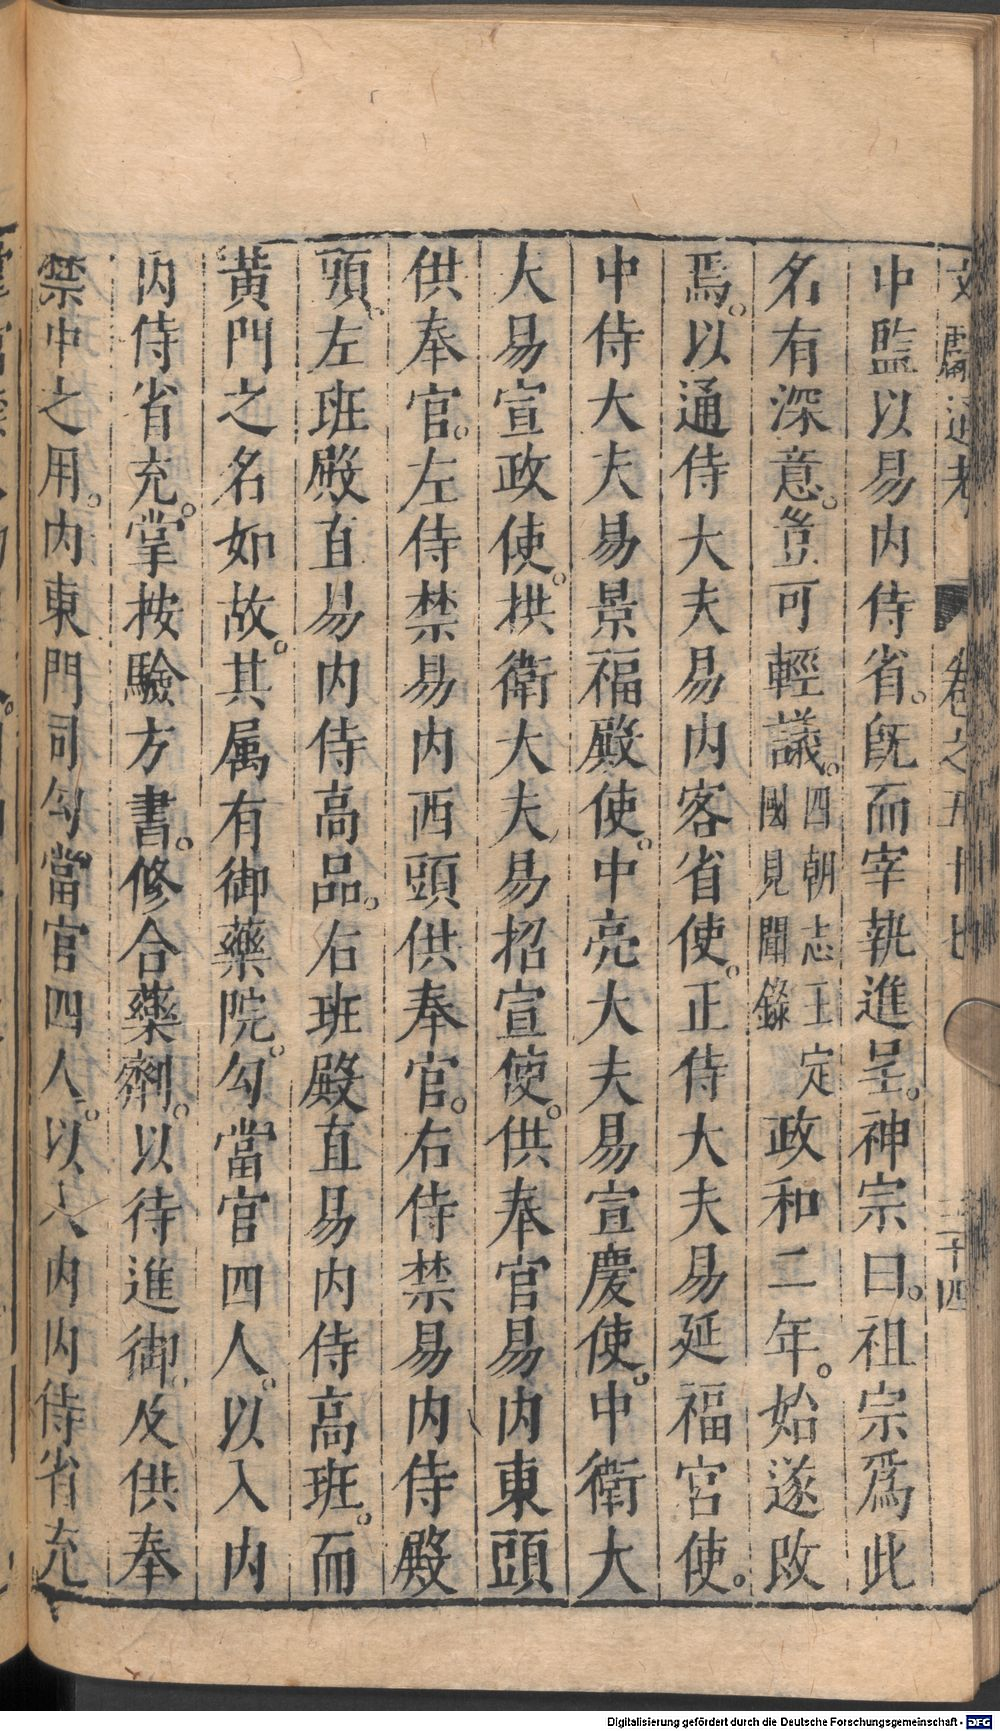 文獻通考 卷之五十七 三十四
中監以易内侍省。旣而宰執進呈。神宗曰。祖宗爲此
名有深意。豈可輕議。四朝志王定國見聞錄政和二年。始遂改
焉。以通侍大夫易内客省使。正侍大夫易延福宮使。
中侍大夫易景福殿使。中亮大夫易宣慶使。中衛大
大易宣政使。拱衛大夫易招宣使。供奉官易内東頭
供奉官。左侍禁易内西頭供奉官。右侍禁易内侍殿
頭。左班殿直易内侍高品。右班殿直易内侍高班。而
黄門之名如故。其属有御藥院。勾當官四人。以入内
内侍省充。掌按驗方書。修合藥劑。以待進御。及供奉
禁中之用。内東門司勾當官四人。以入内内侍省充
Digitalisierung gefördert durch die Deutsche Forschungsgemeinschaft - DFG